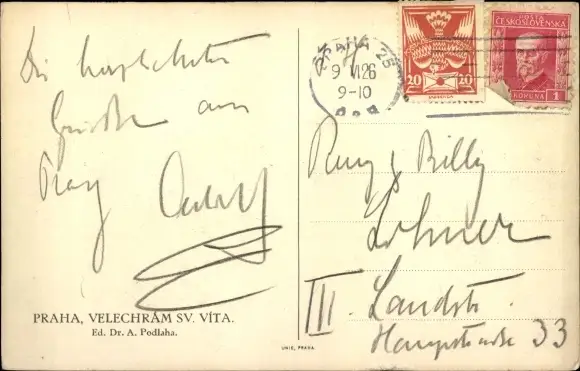 Die herzlichsten
Grüße aus
Prag
PRAHA, VELECHRÁM SV. VÍTA.
Ed. Dr. A. Podlaha.
UNIE, PRAHA
PRAHA 25
9 VI 26
9-10
20 20
POŠTA
ČESKOSLOVENSKA
KORUNA 1
Billy
Lohner
III. Landstr.
Hauptstraße 33